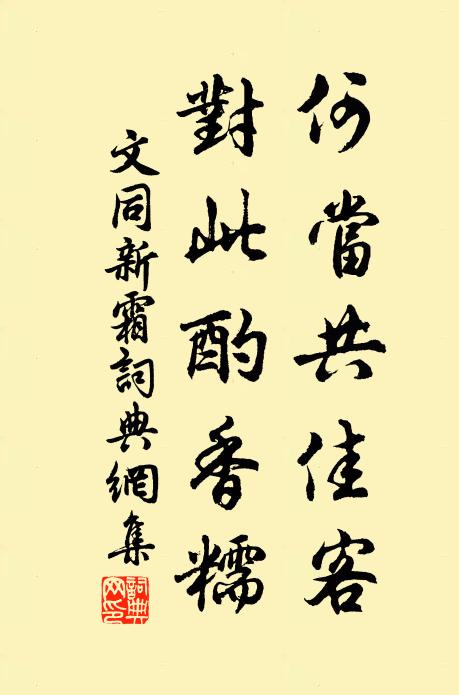 何當共佳客
對此酌香糯
文同新霜詞典網集
詞典網印